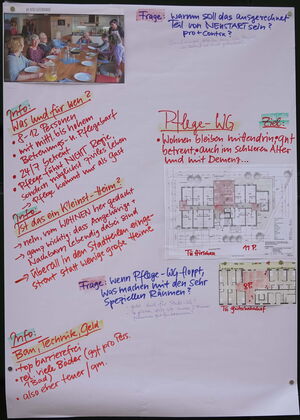 Frage: warum soll das ausgerechnet
Teil von NEUSTART sein?
pro + contra?
Info:
Was und für wen?
• 8-12 Personen
mit mittl. bis hohem
Betreuungs- + Pflegebedarf
• 24/7 betreut
• Pflege führt NICHT Regie,
sondern möglichst viel Leben
→ Pflege kommt nur als Gast
Info:
Ist das ein Kleinst-Heim?
→ nein, vom WOHNEN her gedacht
→ ganz wichtig dass Angehörige +
Nachbarn lebendig dabei sind
→ überall in den Stadtteilen einge-
streut statt wenige große Heime
Pflege-WG
Ziel:
• Wohnen bleiben mittendrin, gut
betreut, auch im schweren Alter
und mit Demenz...
11 P.
8 P.
Frage: wenn Pflege-WG floppt,
was machen mit den sehr
speziellen Räumen?
Info:
Bau, Technik, Geld
• top barrierefrei
• rel. viele Bäder
(1 Bad)
• also eher teuer / qm.